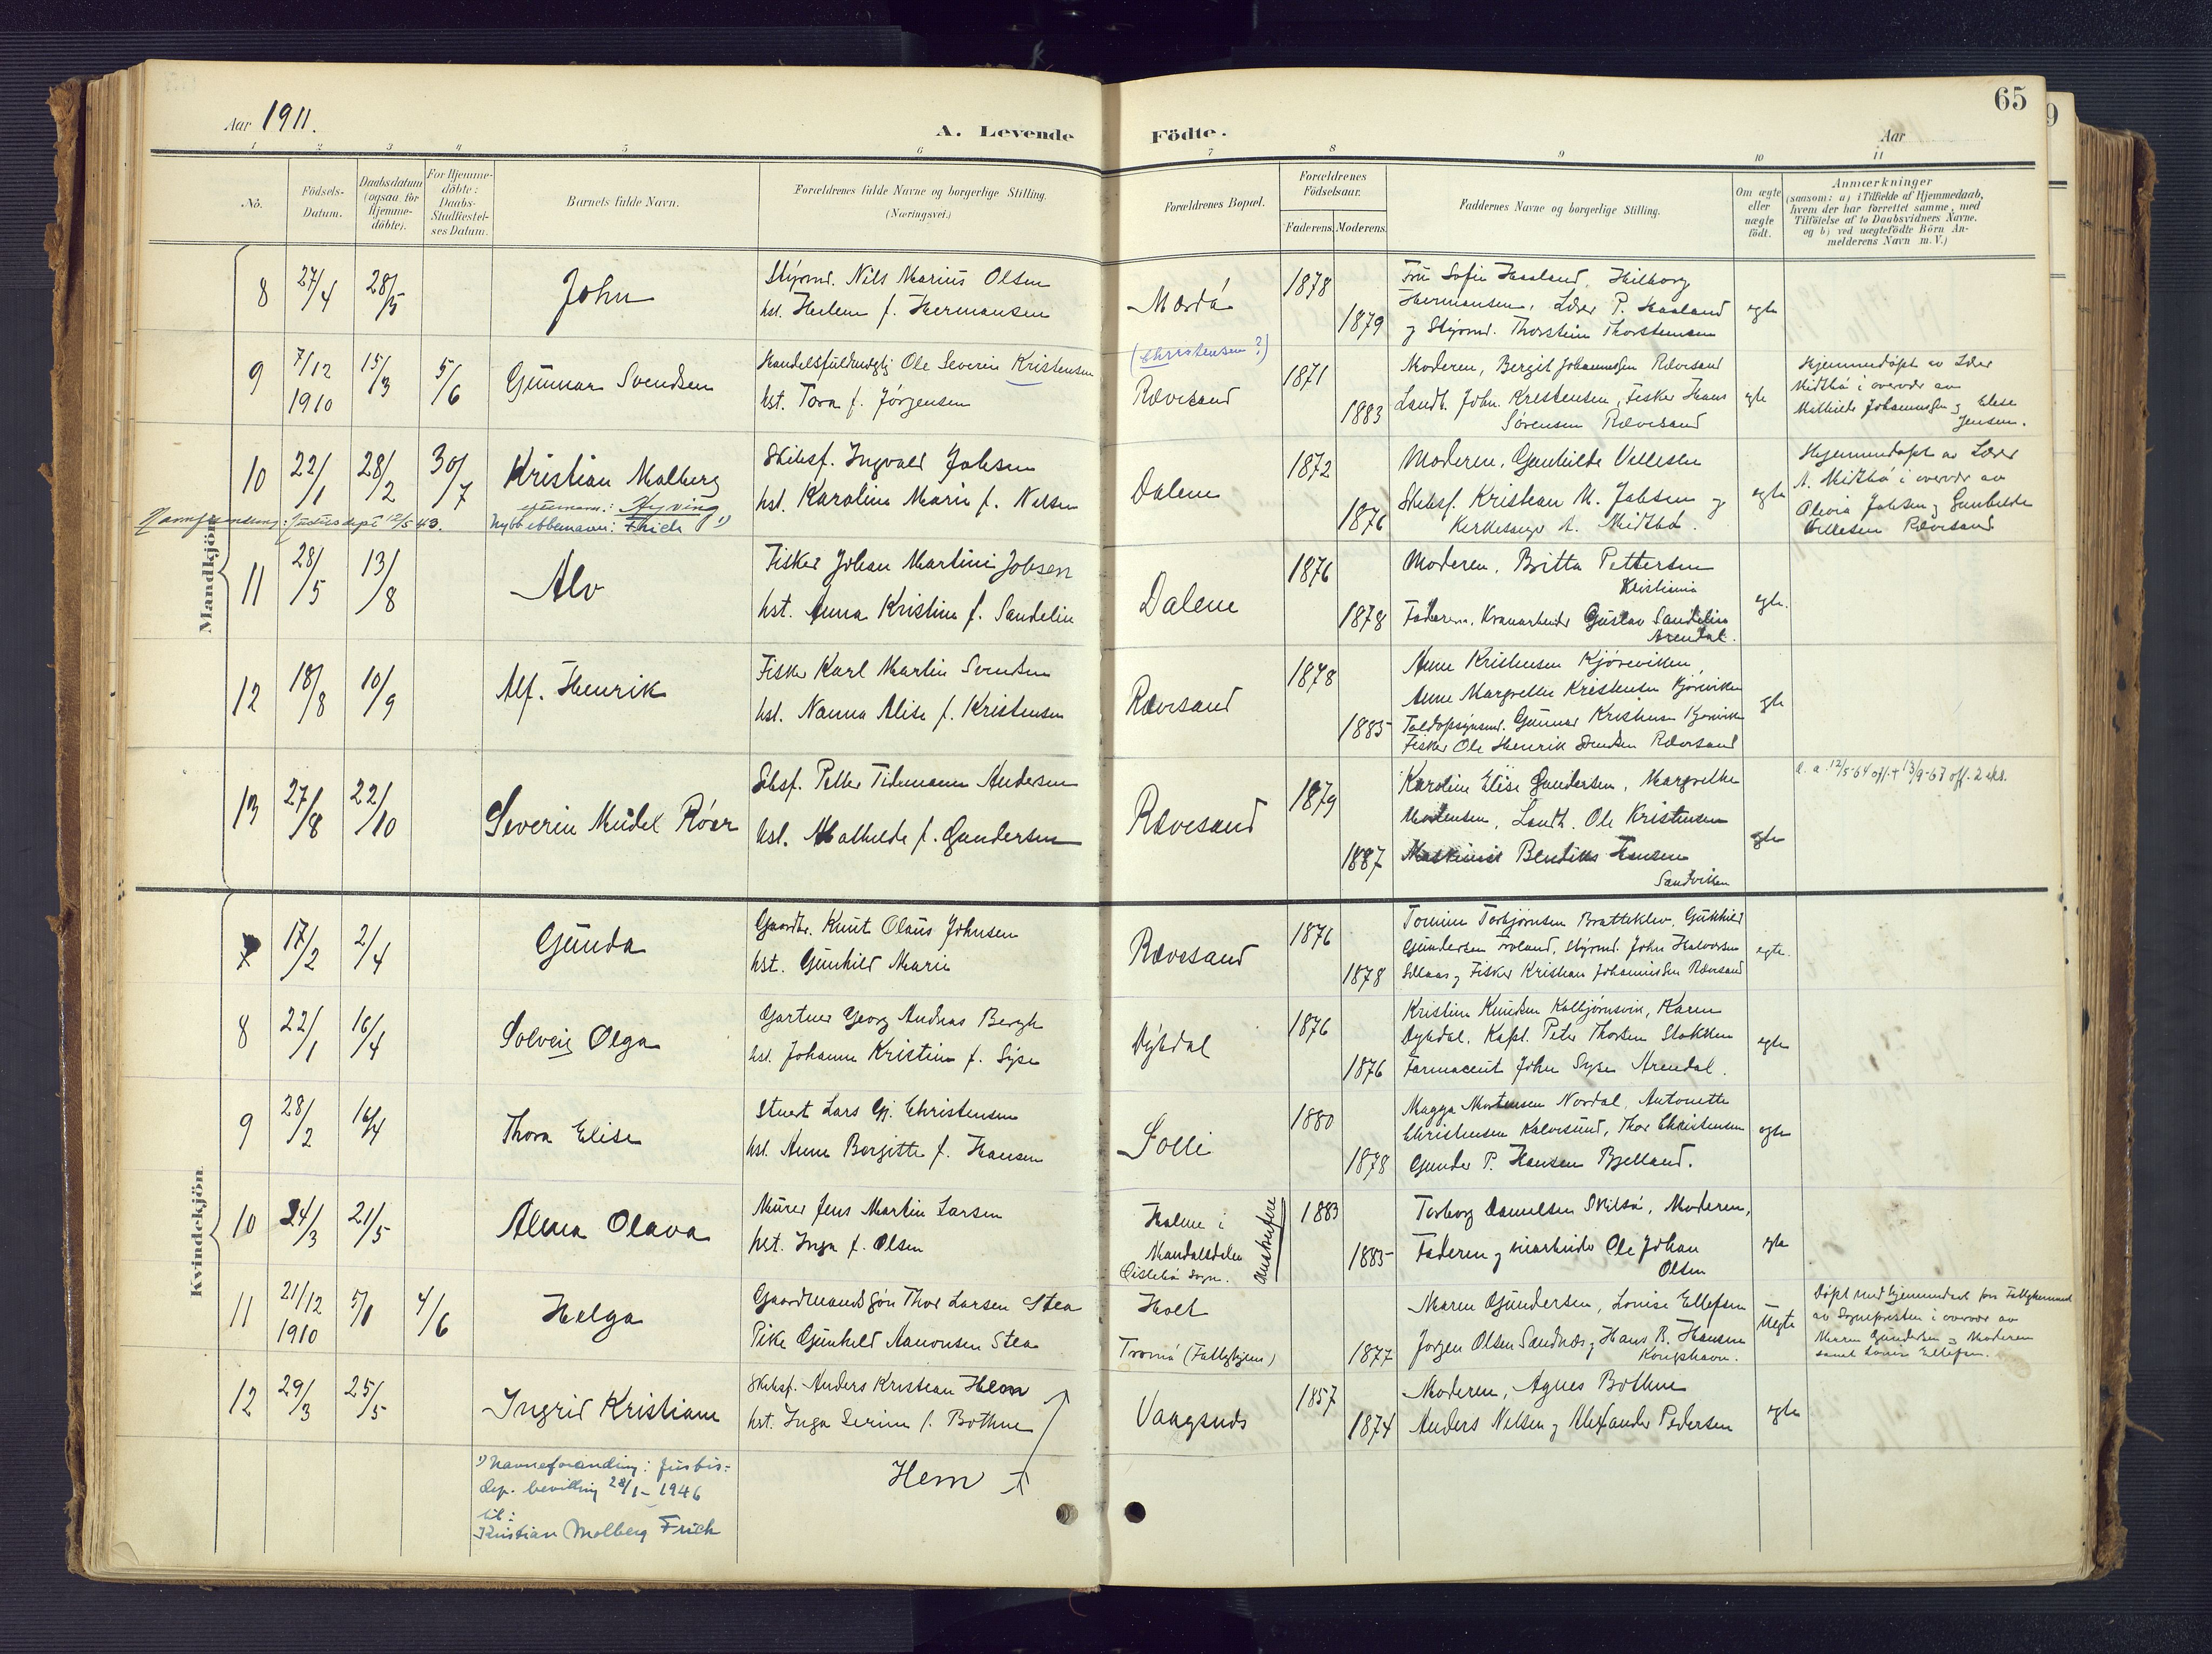 Aar 1911.
A. Levende
Födte.
Aar
65
1 2 3 4 5 6 7 8 9 10 11
No.
Födsels-
Datum.
Daabsdatum
(ogsaa for
Hjemme-
döbte).
For Hjemme-
döbte:
Daabs-
Stadfæstel-
ses Datum.
Barnets fulde Navn.
Forældrenes fulde Navne og borgerlige Stilling.
(Næringsvei.)
Forældrenes Bopæl.
Forældrenes
Födselsaar.
Faderens. Moderens.
Faddernes Navne og borgerlige Stilling.
Om ægte
eller
uægte
født.
Anmærkninger
(saasom: a) i Tilfælde af Hjemmedaab,
hvem der har forrettet samme, med
Tilföielse af to Daabsvidners Navne.
og b) ved uægtefödte Börn An-
melderens Navn m. V.)
Mandkjön
8 27/4 28/5 John
Styrmd. Nils Marius Olsen
hst. Helene f. Hermansen
Mærdø
1878
1879
Fru Sofie Haaland, Hilborg
Hermansen, Lærer P. Haaland
og Styrmd. Thorstein Thorstensen
egte
9 7/12 1910 15/3 5/6 Gunnar Svendsen
Handelsfuldmægtig Ole Severin Kristensen
hst. Tora f. Jörgensen
(Christensen?)
Rævesand
1871
1883
Moderen, Bergit Johannesen Rævesand
Landh. John. Kristensen, Fisker Hans
Sørensen Rævesand
egte
Hjemmedøpt av Lærer
Midtbø i overvær av
Mathilde Johannesen og Elise
Jensen.
10 22/1 28/2 30/7 Kristian Malberg
Skibsf. Ingvald Jakobsen
hst. Karoline Marie f. Nilsen
Dalene
1872
1876
Moderen, Gunhilde Vellesen
Skibsf. Kristian M. Jabsen og
Kirkesanger A. Midtbø.
egte
Hjemmedøpt av Lærer
A. Midtbø i overvær av
Olivia Jabsen og Gunhilde
Vellesen Rævesand
Navneforandring: Justisdept 12/5 43. efternavn: Hyving
Nytt ettenavn: Frich 1)
11 28/5 13/8 Alv
Fisker Johan Martini Jobsen
hst. Anna Kristine f. Sandelin
Dalene
1876
1878
Moderen, Britta Pettersen
Kristiania
Faderen, Kranarbeider Gustav Sandelin
Arendal.
egte.
12 18/8 10/9 Alf. Henrik
Fisker Karl Martin Svendsen
hst. Nanna Alise f. Kristensen
Rævesand
1878
1885
Anne Kristensen Kjöreviken,
Anne Margrethe Kristensen Kjöreviken
Toldopsynsmd. Gunnar Kristensen Kjöreviken
Fisker Ole Henrik Svendsen Rævesand
egte
13 27/8 22/10 Severin Meidel Röer
Skbsf. Petter Tidemann Andersen
hst. Mathilde f. Gundersen
Rævesand
1879
1887
Karoline Elise Gundersen, Margrethe
Mortensen, Landh. Ole Kristensen
Maskinist Bendiks Hansen
Sandviken
egte
d. a. 12/5-64 off. + 13/9-67 off. 2 eks.
Kvindekjön
7 17/2 2/4 Gunda
Gaardbr. Knut Olaus Johnsen
hst. Gunhild Marie
Rævesand
1876
1878
Tomine Torbjørnsen Bratteklev, Gunhild
Gundersen Froland, Styrmd. John Halvorsen
og Fisker Kristian Johannesen Rævesand
egte.
8 22/1 16/4 Solveig Olga
Gartner Georg Andreas Bergh
hst. Johanne Kristine f. Syse
Dybdal
1876
1876
Kristine Knudsen Kolbjørnsvik, Karen
Dybdal, Kapt. Peter Thorsen Stokken
Farmaceut John Syse Arendal.
egte
9 28/2 16/4 Thora Elise
Stuert Lars Gj. Christensen
hst. Anne Bergitte f. Hansen
Solli
1880
1878
Magga Mortensen Nordal, Antonette
Christensen Kalvesund, Thor Christensen
Gunder P. Hansen Bjelland.
egte
10 24/3 21/5 Alma Olava
Murer Jens Martin Larsen
hst. Inga f. Olsen
Holme i
Mandalsdalen
Øislebø Sogn.
1883
1885
Torborg Danielsen Skilsø, Moderen,
Faderen og Ole Johan
Olsen
egte
11 21/12 1910 5/1 4/6 Helga
Gaardmandssøn Thor Larsen Stea
Pike Gunhild Aanonsen Stea
Holt
Tromø (Fattighjem)
1877
Maren Gundersen, Louise Ellefsen
Jørgen Olsen Sandnæs, Hans B. Hansen
Kongshavn.
Uegte
Døpt ved Hjemmedaab paa Fattighjemmet
av Sognepresten i overvær av
Maren Gundersen og Moderen
samt Louise Ellefsen.
12 29/3 25/5 Ingrid Kristiane
Skibsf. Anders Kristian Hem
hst. Inga Serine f. Bothne
Vaagsnes
1857
1874
Moderen, Agnes Bothne
Anders Nilsen og Alexander Pedersen
egte
Hem
1) Navneforandring: Justis-
dep. bevilling 28/1-1946
til:
Kristian Malberg Frich